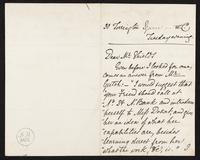 30 Torrington Square WC
Tuesday evening
Dear Mr. Shields
Even before I looked for one,
comes an answer from Mr.
"I would suggest that
your friend should call at
No. 24 and introduce
herself to Miss and give
her an idea of what her
capabilities are, besides
learning direct from her
what the work, &c, is." I